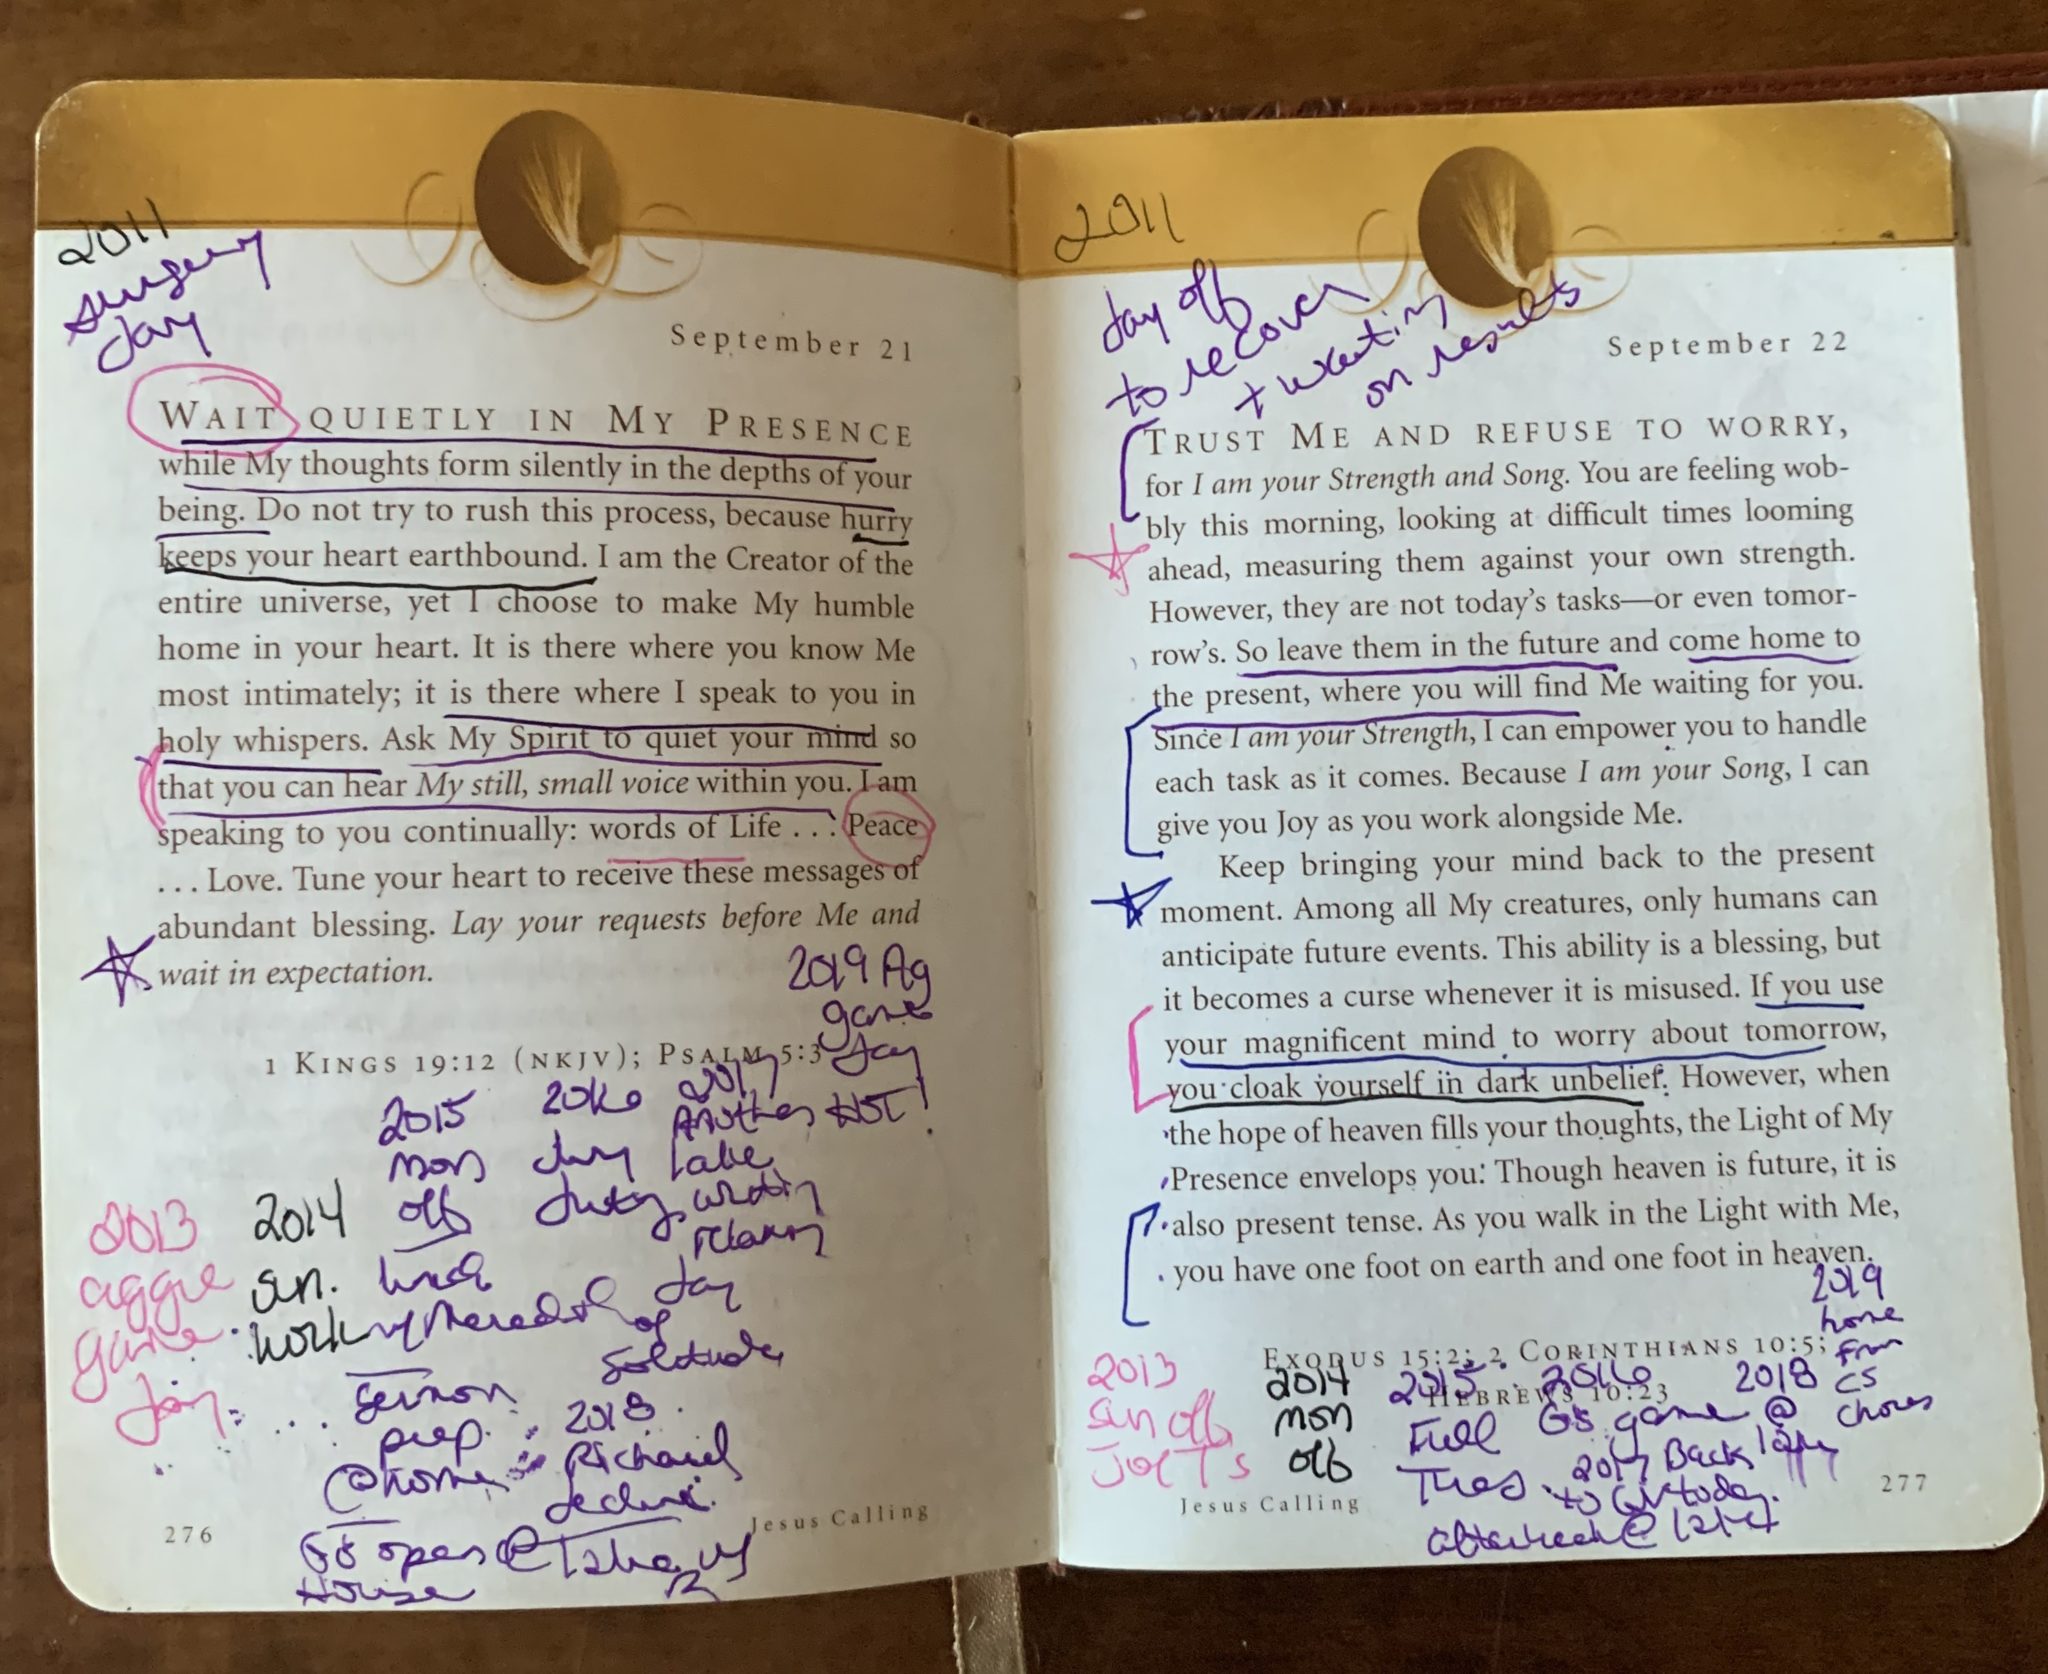 2011
surgery
day
September 21
WAIT QUIETLY IN MY PRESENCE
while My thoughts form silently in the depths of your
being. Do not try to rush this process, because hurry
keeps your heart earthbound. I am the Creator of the
entire universe, yet I choose to make My humble
home in your heart. It is there where you know Me
most intimately; it is there where I speak to you in
holy whispers. Ask My Spirit to quiet your mind so
that you can hear My still, small voice within you. I am
speaking to you continually: words of Life . . . Peace
. . . Love. Tune your heart to receive these messages of
abundant blessing. Lay your requests before Me and
wait in expectation.
2019 Ag
game
day
HOT!
1 KINGS 19:12 (NKJV); PSALM 5:3
2013
aggie
game
day
2014
sun.
work
2015
mon
off
lunch
w/ Meredith
sermon
prep.
@ home
GS open
House
2016
jury
duty
2017
Another
lake
day
of
solitude
2018
Richard
@ lake w/
R
276
Jesus Calling
2011
day off
to recover
+ waiting
on results
September 22
TRUST ME AND REFUSE TO WORRY,
for I am your Strength and Song. You are feeling wob-
bly this morning, looking at difficult times looming
ahead, measuring them against your own strength.
However, they are not today's tasks—or even tomor-
row's. So leave them in the future and come home to
the present, where you will find Me waiting for you.
Since I am your Strength, I can empower you to handle
each task as it comes. Because I am your Song, I can
give you Joy as you work alongside Me.
Keep bringing your mind back to the present
moment. Among all My creatures, only humans can
anticipate future events. This ability is a blessing, but
it becomes a curse whenever it is misused. If you use
your magnificent mind to worry about tomorrow,
you cloak yourself in dark unbelief. However, when
the hope of heaven fills your thoughts, the Light of My
Presence envelops you. Though heaven is future, it is
also present tense. As you walk in the Light with Me,
you have one foot on earth and one foot in heaven.
EXODUS 15:2; 2 CORINTHIANS 10:5;
HEBREWS 10:23
2013
sun off
2014
mon
off
2015
Full
Tues.
2016
GS game @
2017 Back
to GV today.
after week @ lake
2018
2019
home
from
CS
chores
Jesus Calling
277